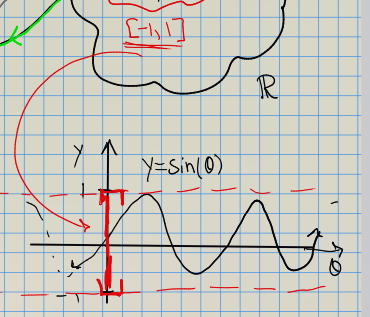 [-1,1]
ℝ
y
y=sin(θ)
1
-1
θ